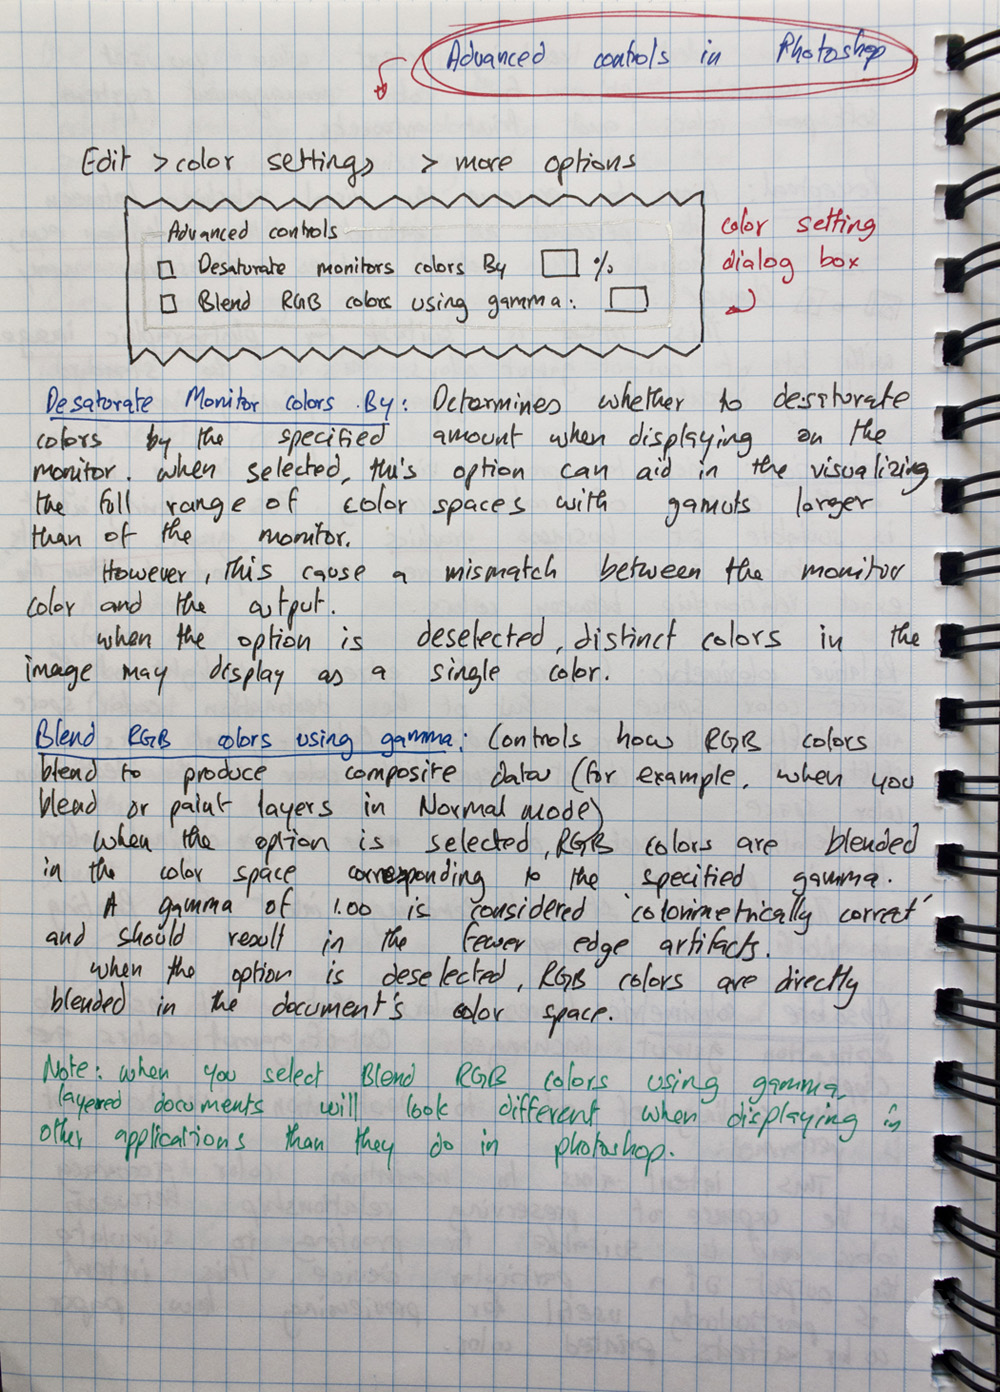 Advanced controls in Photoshop
Edit > color settings > more options
Advanced controls
Desaturate monitors colors By %
Blend RGB colors using gamma:
color setting
dialog box
Desaturate Monitor colors By: Determines whether to desaturate
colors by the specified amount when displaying on the
monitor. when selected, this option can aid in the visualizing
the full range of color spaces with gamuts larger
than of the monitor.
However, this cause a mismatch between the monitor
color and the output.
when the option is deselected, distinct colors in the
image may display as a single color.
Blend RGB colors using gamma: Controls how RGB colors
blend to produce composite data (for example, when you
blend or paint layers in Normal mode)
when the option is selected, RGB colors are blended
in the color space corresponding to the specified gamma.
A gamma of 1.00 is considered 'colorimetrically correct'
and should result in the fewer edge artifacts.
when the option is deselected, RGB colors are directly
blended in the document's color space.
Note: when you select Blend RGB colors using gamma,
layered documents will look different when displaying in
other applications than they do in photoshop.